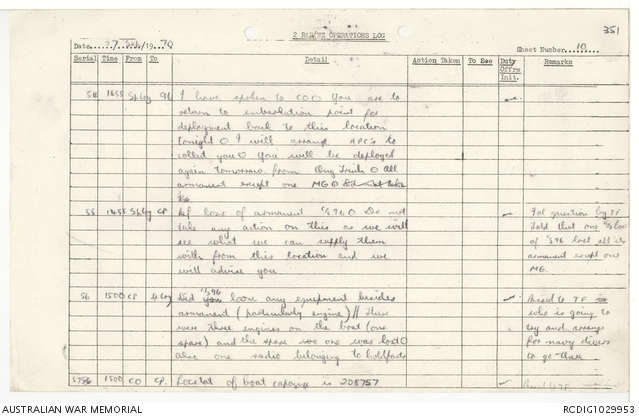 351
2 RAR/NZ OPERATIONS LOG
Date 7 Sep/19 70
Sheet Number 10
Serial Time From To Detail Action Taken To See Duty Offrs Init. Remarks
54 1455 I have spoken to CO O You are to
return to embarkation point for
deployment back to this location
tonight O I will arrange APC's to
collect you O You will be deployed
again tomorrow from Ong Trinh O All
armament except one MG O
55 1455 CP Ref loss of armament O Do not
take any action on this as we will
see what we can supply them
with from this location and we
will advise you
For question by TF
Told that one
of lost all its
armament except one
MG.
56 1500 CP Did you loose any equipment besides
armament (particularly engine) // There
were three engines on the boat (one
spare) and the spare one was lost O
also one radio belonging to
to TF
who is going to
try and arrange
for navy divers
to go there
1500 CO CP Locstat of boat capsize is 208757
AUSTRALIAN WAR MEMORIAL
RCDIG1029953